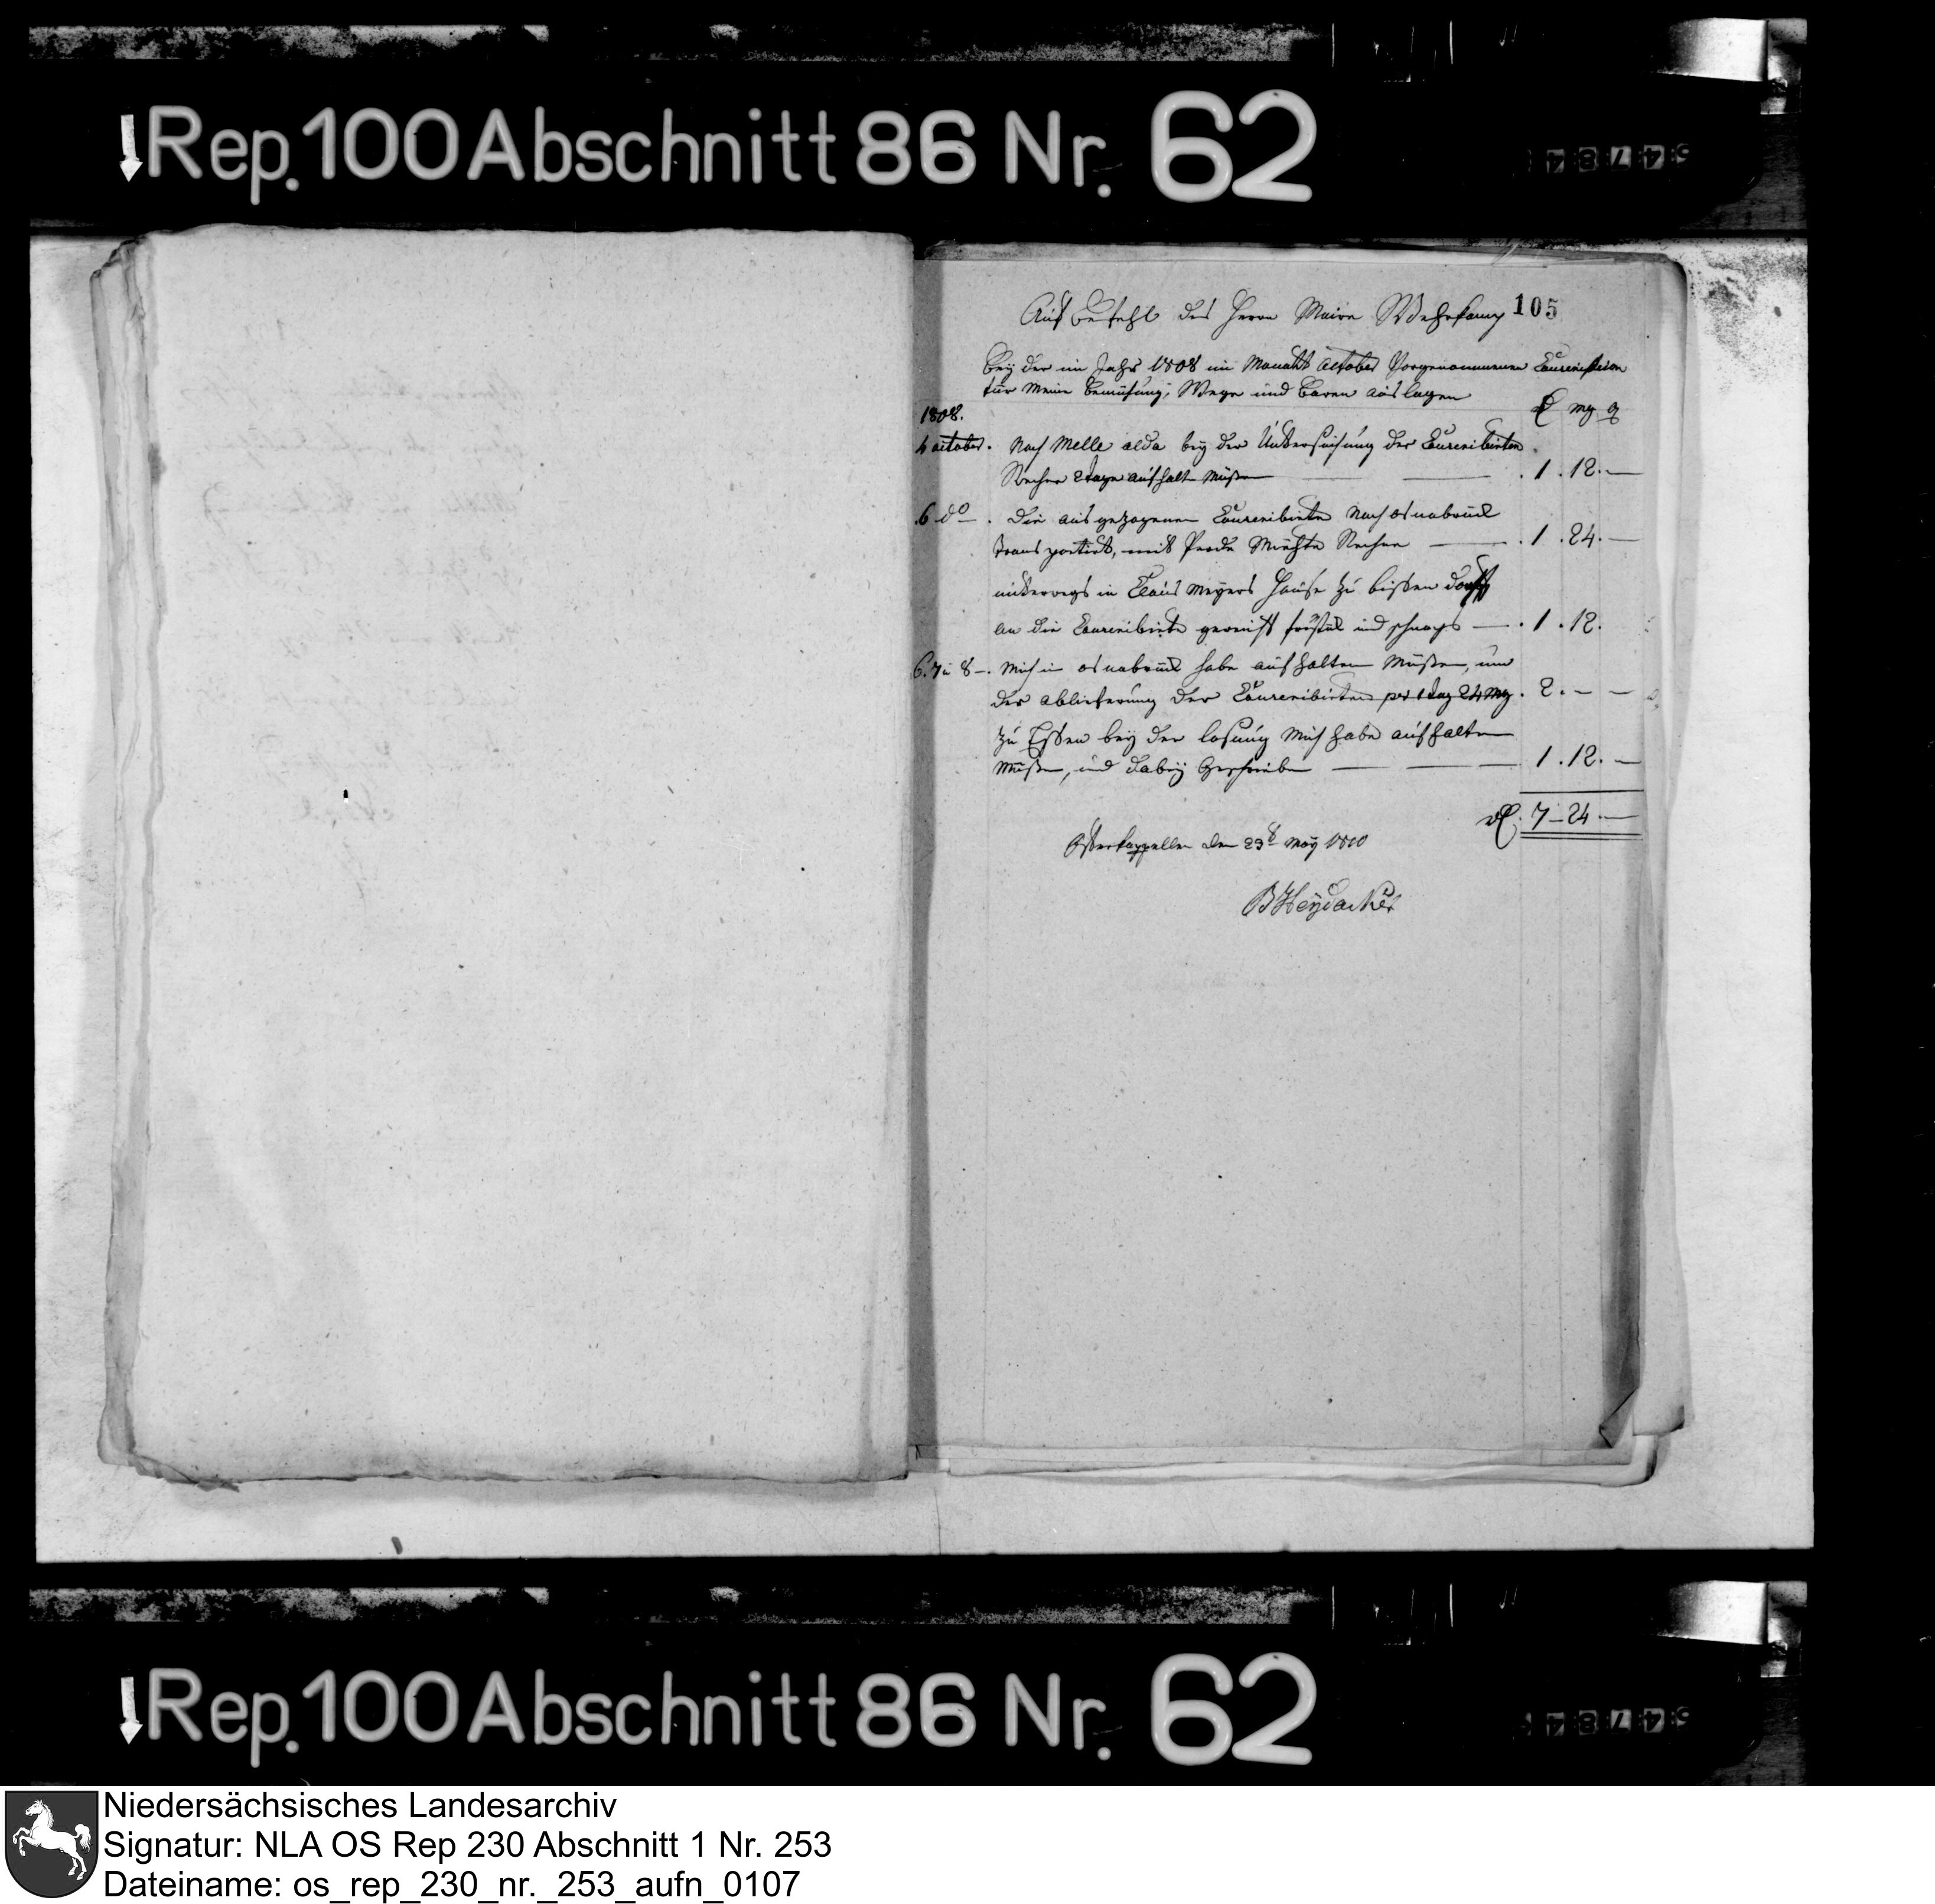 Rep. 100 Abschnitt 86 Nr. 62
105
Auf Befehl des Herrn Maire Wehrkamp
Bey der im Jahr 1808 im Monaht october Vorgenommenen Conscription
für meine Bemühung, Wege und Baren auslagen
mg
1808.
4 october. Nach Melle alda bey der Untersuchung der Conscribirten
2 tage aufhalt Müßen 1. 12. —
6 do. die ausgezogenen Conscribirte Nach osnabrück
transportirt, mit Perde 1. 24. —
unterwegs in Claus Meyers Hause zu bissendorff
an die Conscribirte gereicht früstück und schnaps — 1. 12.
6. 7 u 8 —. Mich in osnabrück habe aufhalten Müßen, um
der ablieferung der Conscribirten per 1 tag 24 mg. 2. — —
zu Essen bey der losung Mich habe aufhalten
Müßen, und dabey Geschrieben — 1. 12. —
7 — 24. —
Osterkappellen den 29 May 1810
B Heydacker
Rep. 100 Abschnitt 86 Nr. 62
Niedersächsisches Landesarchiv
Signatur: NLA OS Rep 230 Abschnitt 1 Nr. 253
Dateiname: os_rep_230_nr._253_aufn_0107